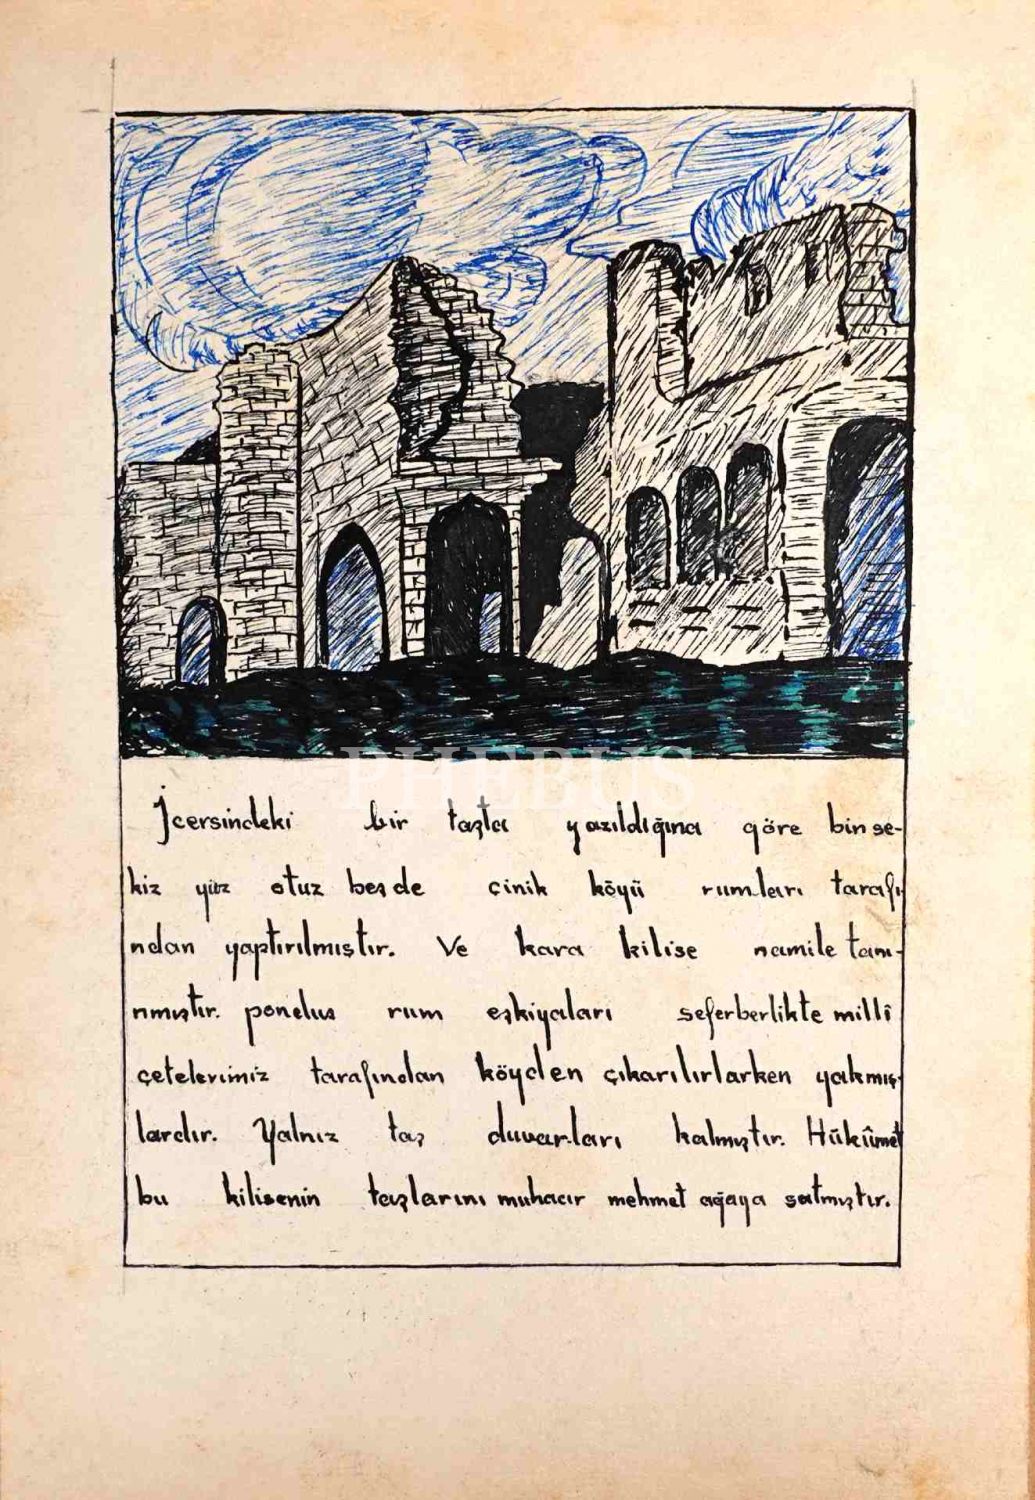 PHEBUS
İcersindeki bir taşta yazıldığına göre bin se-
kiz yüz otuz beş de çinik köyü rumları tarafı
ndan yaptırılmıştır. Ve kara kilise namile tanı-
nmıştır. pondus rum eşkiyaları seferberlikte millî
çetelerimiz tarafından köyden çıkarılırlarken yakmış-
lardır. Yalnız taş duvarları kalmıştır. Hükûmet
bu kilisenin taşlarını muhacır mehmet ağaya satmıştır.